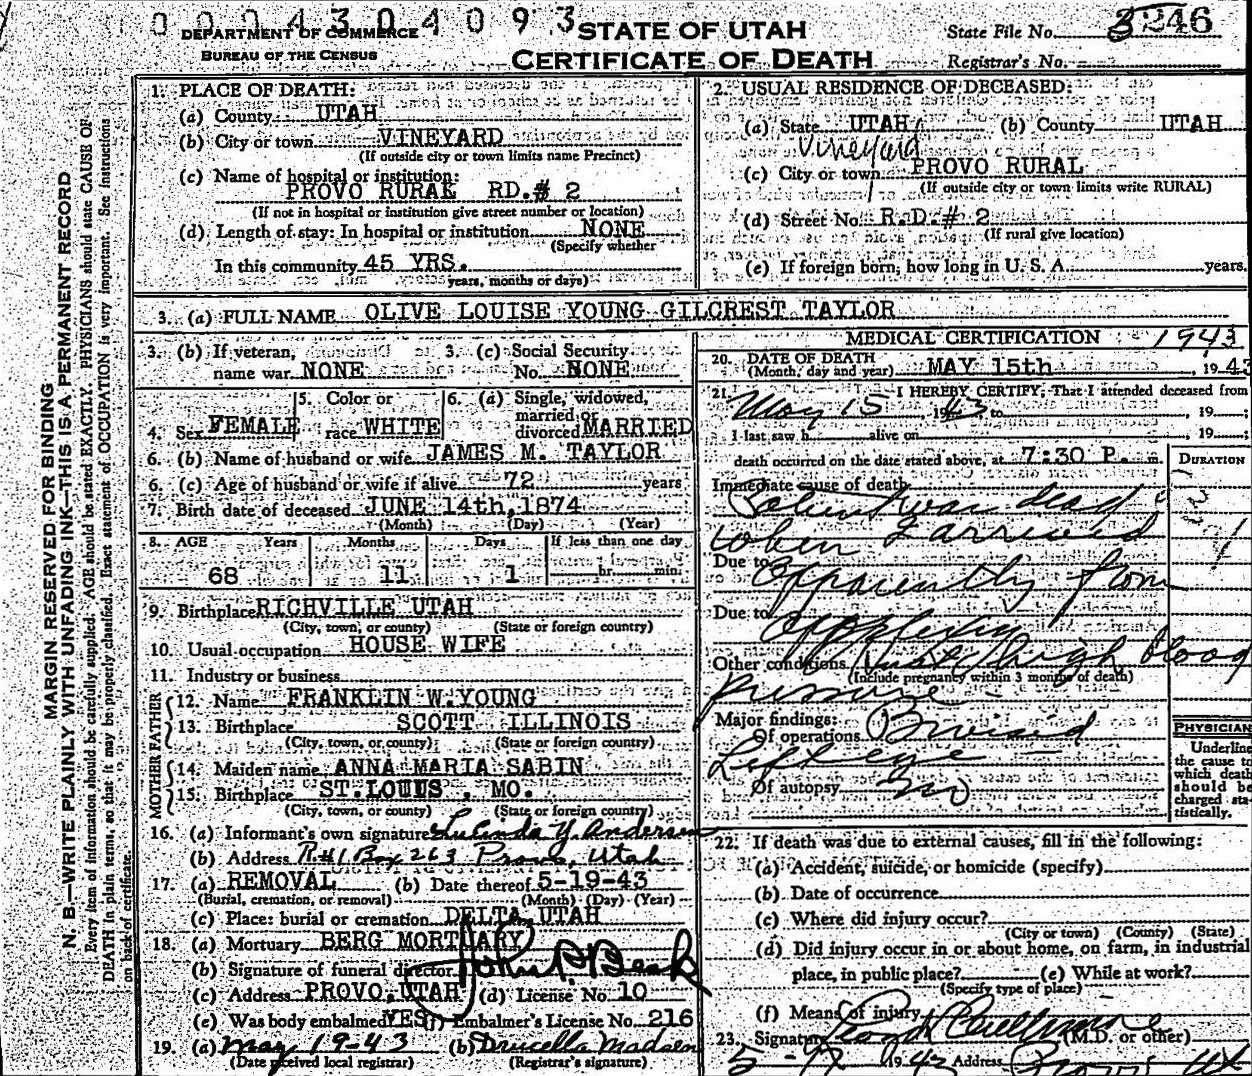 0004304093
DEPARTMENT OF COMMERCE
BUREAU OF THE CENSUS
STATE OF UTAH
CERTIFICATE OF DEATH
State File No. 3246
Registrar's No.
MARGIN RESERVED FOR BINDING
N. B.—WRITE PLAINLY WITH UNFADING INK—THIS IS A PERMANENT RECORD
Every item of information should be carefully supplied. AGE should be stated EXACTLY. PHYSICIANS should state CAUSE OF
DEATH in plain terms, so that it may be properly classified. Exact statement of OCCUPATION is very important. See instructions
on back of certificate.
1. PLACE OF DEATH:
(a) County UTAH
(b) City or town VINEYARD
(If outside city or town limits name Precinct)
(c) Name of hospital or institution:
PROVO RURAL RD.# 2
(If not in hospital or institution give street number or location)
(d) Length of stay: In hospital or institution NONE
(Specify whether
In this community 45 YRS.
years, months or days)
2. USUAL RESIDENCE OF DECEASED:
(a) State UTAH (b) County UTAH
Vineyard
(c) City or town PROVO RURAL
(If outside city or town limits write RURAL)
(d) Street No. R.D.# 2
(If rural give location)
(e) If foreign born, how long in U. S. A. years.
3. (a) FULL NAME OLIVE LOUISE YOUNG GILCREST TAYLOR
3. (b) If veteran, name war NONE
3. (c) Social Security No. NONE
4. Sex FEMALE
5. Color or race WHITE
6. (a) Single, widowed, married or divorced MARRIED
6. (b) Name of husband or wife JAMES M. TAYLOR
6. (c) Age of husband or wife if alive 72 years
7. Birth date of deceased JUNE 14th, 1874
(Month) (Day) (Year)
8. AGE Years Months Days If less than one day
68 11 1 hr. min.
9. Birthplace RICHVILLE UTAH
(City, town, or county) (State or foreign country)
10. Usual occupation HOUSE WIFE
11. Industry or business
FATHER
12. Name FRANKLIN W. YOUNG
13. Birthplace SCOTT ILLINOIS
(City, town, or county) (State or foreign country)
MOTHER
14. Maiden name ANNA MARIA SABIN
15. Birthplace ST. LOUIS, MO.
(City, town, or county) (State or foreign country)
16. (a) Informant's own signature Lucinda Y. Andersen
(b) Address R.#1 Box 263 Provo, Utah
17. (a) REMOVAL (b) Date thereof 5-19-43
(Burial, cremation, or removal) (Month) (Day) (Year)
(c) Place: burial or cremation DELTA, UTAH
18. (a) Mortuary BERG MORTUARY
(b) Signature of funeral director
(c) Address PROVO, UTAH (d) License No. 10
(e) Was body embalmed YES (f) Embalmer's License No. 216
19. (a) May 19-43 (b) Drucella Madsen
(Date received local registrar) (Registrar's signature)
MEDICAL CERTIFICATION 1943
20. DATE OF DEATH
(Month, day and year) MAY 15th, 1943
21. I HEREBY CERTIFY, That I attended deceased from
May 15, 1943 to , 19 ;
I last saw h alive on , 19 ;
death occurred on the date stated above, at 7:30 P. m.
DURATION
Immediate cause of death
Patient was dead
when I arrived
Due to Apparently from
Due to apoplexy
Other conditions high blood
(Include pregnancy within 3 months of death)
pressure
Major findings:
Of operations Bruised
Left eye
Of autopsy no
PHYSICIAN
Underline
the cause to
which death
should be
charged sta-
tistically.
22. If death was due to external causes, fill in the following:
(a) Accident, suicide, or homicide (specify)
(b) Date of occurrence
(c) Where did injury occur?
(City or town) (County) (State)
(d) Did injury occur in or about home, on farm, in industrial
place, in public place? (e) While at work?
(Specify type of place)
(f) Means of injury
23. Signature (M.D. or other)
1943 Address Provo Ut